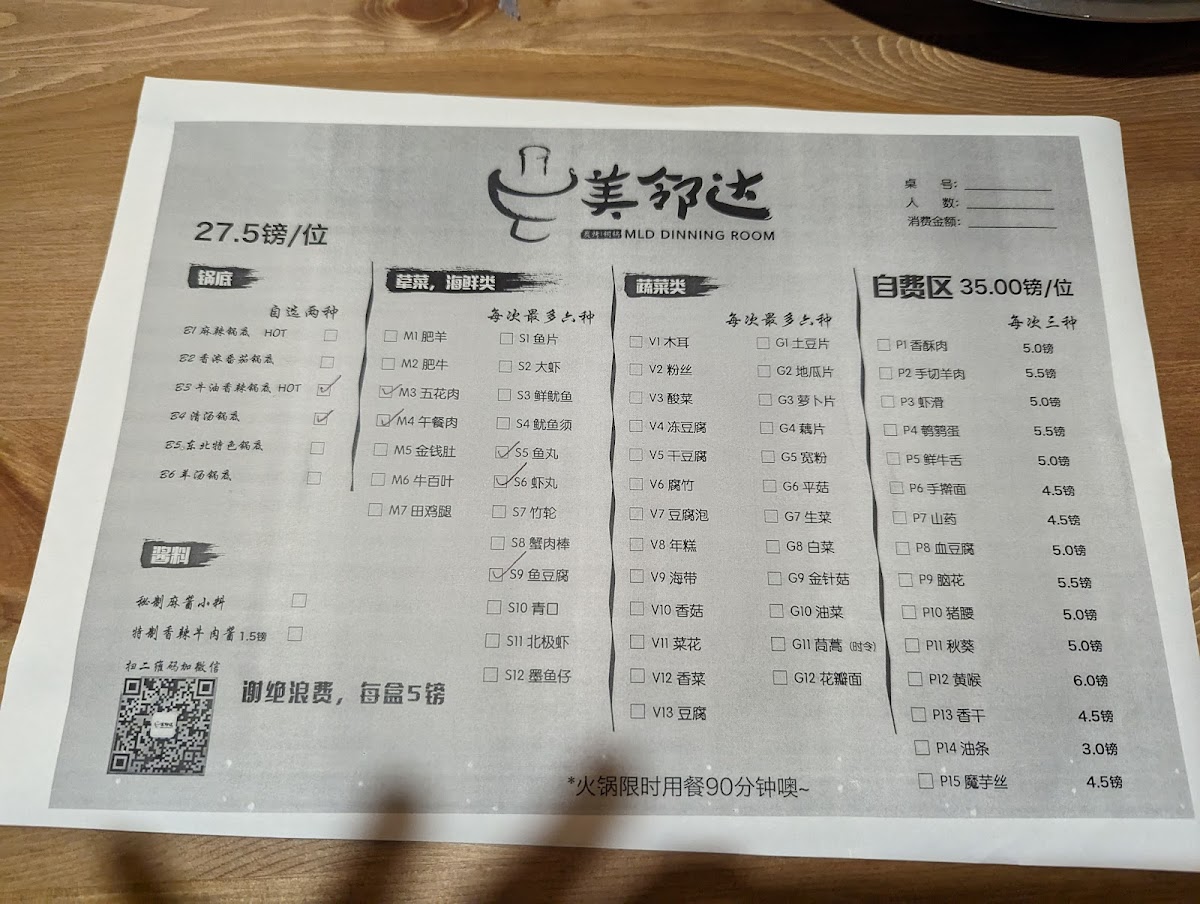 美邻达
MLD DINNING ROOM
桌 号:
人 数:
消费金额:
27.5镑/位
锅底
自选两种
B1 麻辣锅底 HOT
B2 香浓番茄锅底
B3 牛油香辣锅底 HOT
B4 清汤锅底
B5 东北特色锅底
B6 羊汤锅底
酱料
秘制麻酱小料
特制香辣牛肉酱 1.5镑
扫二维码加微信
谢绝浪费，每盒5镑
荤菜，海鲜类
每次最多六种
M1 肥羊
M2 肥牛
M3 五花肉
M4 午餐肉
M5 金钱肚
M6 牛百叶
M7 田鸡腿
S1 鱼片
S2 大虾
S3 鲜鱿鱼
S4 鱿鱼须
S5 鱼丸
S6 虾丸
S7 竹轮
S8 蟹肉棒
S9 鱼豆腐
S10 青口
S11 北极虾
S12 墨鱼仔
蔬菜类
每次最多六种
V1 木耳
V2 粉丝
V3 酸菜
V4 冻豆腐
V5 干豆腐
V6 腐竹
V7 豆腐泡
V8 年糕
V9 海带
V10 香菇
V11 菜花
V12 香菜
V13 豆腐
G1 土豆片
G2 地瓜片
G3 萝卜片
G4 藕片
G5 宽粉
G6 平菇
G7 生菜
G8 白菜
G9 金针菇
G10 油菜
G11 茼蒿 (时令)
G12 花瓣面
自费区 35.00镑/位
每次三种
P1 香酥肉 5.0镑
P2 手切羊肉 5.5镑
P3 虾滑 5.0镑
P4 鹌鹑蛋 5.5镑
P5 鲜牛舌 5.0镑
P6 手擀面 4.5镑
P7 山药 4.5镑
P8 血豆腐 5.0镑
P9 脑花 5.5镑
P10 猪腰 5.0镑
P11 秋葵 5.0镑
P12 黄喉 6.0镑
P13 香干 4.5镑
P14 油条 3.0镑
P15 魔芋丝 4.5镑
*火锅限时用餐90分钟噢~